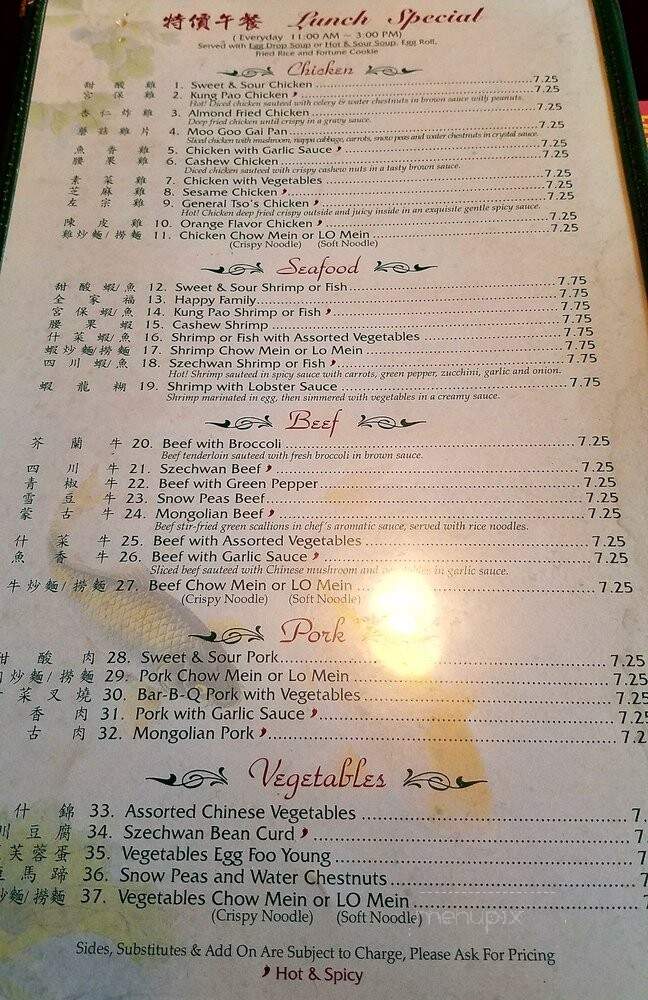 特價午餐 Lunch Special
( Everyday 11:00 AM ~ 3:00 PM)
Served with Egg Drop Soup or Hot & Sour Soup, Egg Roll,
Fried Rice and Fortune Cookie
Chicken
甜 酸 雞 1. Sweet & Sour Chicken 7.25
宮 保 雞 2. Kung Pao Chicken 7.25
Hot! Diced chicken sauteed with celery & water chestnuts in brown sauce with peanuts.
杏 仁 炸 雞 3. Almond Fried Chicken 7.25
Deep fried chicken until crispy in a gravy sauce.
蘑 菇 雞 片 4. Moo Goo Gai Pan 7.25
Sliced chicken with mushroom, nappa cabbage, carrots, snow peas and water chestnuts in crystal sauce.
魚 香 雞 5. Chicken with Garlic Sauce 7.25
腰 果 雞 6. Cashew Chicken 7.25
Diced chicken sauteed with crispy cashew nuts in a tasty brown sauce.
素 菜 雞 7. Chicken with Vegetables 7.25
芝 麻 雞 8. Sesame Chicken 7.25
左 宗 雞 9. General Tso's Chicken 7.25
Hot! Chicken deep fried crispy outside and juicy inside in an exquisite gentle spicy sauce.
陳 皮 雞 10. Orange Flavor Chicken 7.25
雞炒麵/撈麵 11. Chicken Chow Mein or LO Mein 7.25
(Crispy Noodle) (Soft Noodle)
Seafood
甜 酸 蝦/魚 12. Sweet & Sour Shrimp or Fish 7.75
全 家 福 13. Happy Family 7.75
宮 保 蝦/魚 14. Kung Pao Shrimp or Fish 7.75
腰 果 蝦 15. Cashew Shrimp 7.75
什 菜 蝦/魚 16. Shrimp or Fish with Assorted Vegetables 7.75
蝦炒麵/撈麵 17. Shrimp Chow Mein or Lo Mein 7.75
四 川 蝦/魚 18. Szechwan Shrimp or Fish 7.75
Hot! Shrimp sauteed in spicy sauce with carrots, green pepper, zucchini, garlic and onion.
蝦 龍 糊 19. Shrimp with Lobster Sauce 7.75
Shrimp marinated in egg, then simmered with vegetables in a creamy sauce.
Beef
芥 蘭 牛 20. Beef with Broccoli 7.25
Beef tenderloin sauteed with fresh broccoli in brown sauce.
四 川 牛 21. Szechwan Beef 7.25
青 椒 牛 22. Beef with Green Pepper 7.25
雪 豆 牛 23. Snow Peas Beef 7.25
蒙 古 牛 24. Mongolian Beef 7.25
Beef stir-fried green scallions in chef's aromatic sauce, served with rice noodles.
什 菜 牛 25. Beef with Assorted Vegetables 7.25
魚 香 牛 26. Beef with Garlic Sauce 7.25
Sliced beef sauteed with Chinese mushroom and in garlic sauce.
牛炒麵/撈麵 27. Beef Chow Mein or LO Mein 7.25
(Crispy Noodle) (Soft Noodle)
Pork
甜 酸 肉 28. Sweet & Sour Pork 7.25
炒麵/撈麵 29. Pork Chow Mein or Lo Mein 7.25
菜 叉 燒 30. Bar-B-Q Pork with Vegetables 7.25
香 肉 31. Pork with Garlic Sauce 7.25
古 肉 32. Mongolian Pork 7.2
Vegetables
什 錦 33. Assorted Chinese Vegetables 7.
川 豆 腐 34. Szechwan Bean Curd 7
芙 蓉 蛋 35. Vegetables Egg Foo Young 7
馬 蹄 36. Snow Peas and Water Chestnuts 7
炒麵/撈麵 37. Vegetables Chow Mein or LO Mein
(Crispy Noodle) (Soft Noodle)
menupix
Sides, Substitutes & Add On Are Subject to Charge, Please Ask For Pricing
Hot & Spicy